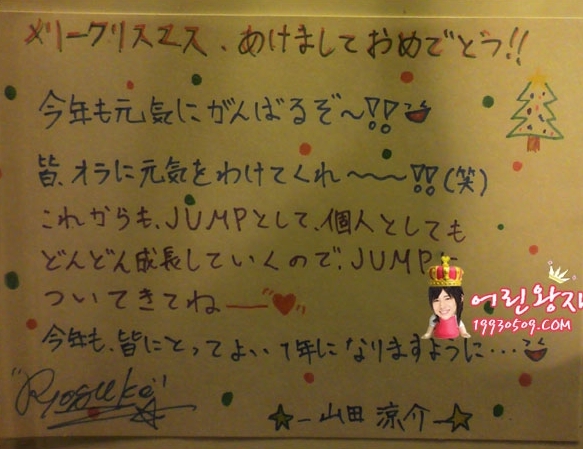 メリークリスマス、あけましておめでとう!!
今年も元気にがんばるぞ〜!!
皆、オラに元気をわけてくれ〜〜!!(笑)
これからも、JUMPとして、個人としても
どんどん成長していくので、JUMPに
ついてきてねー
어린왕자
19930509.COM
今年も、皆にとってよい1年になりますように・・・
"Ryosuke"
☆-山田 涼介-☆